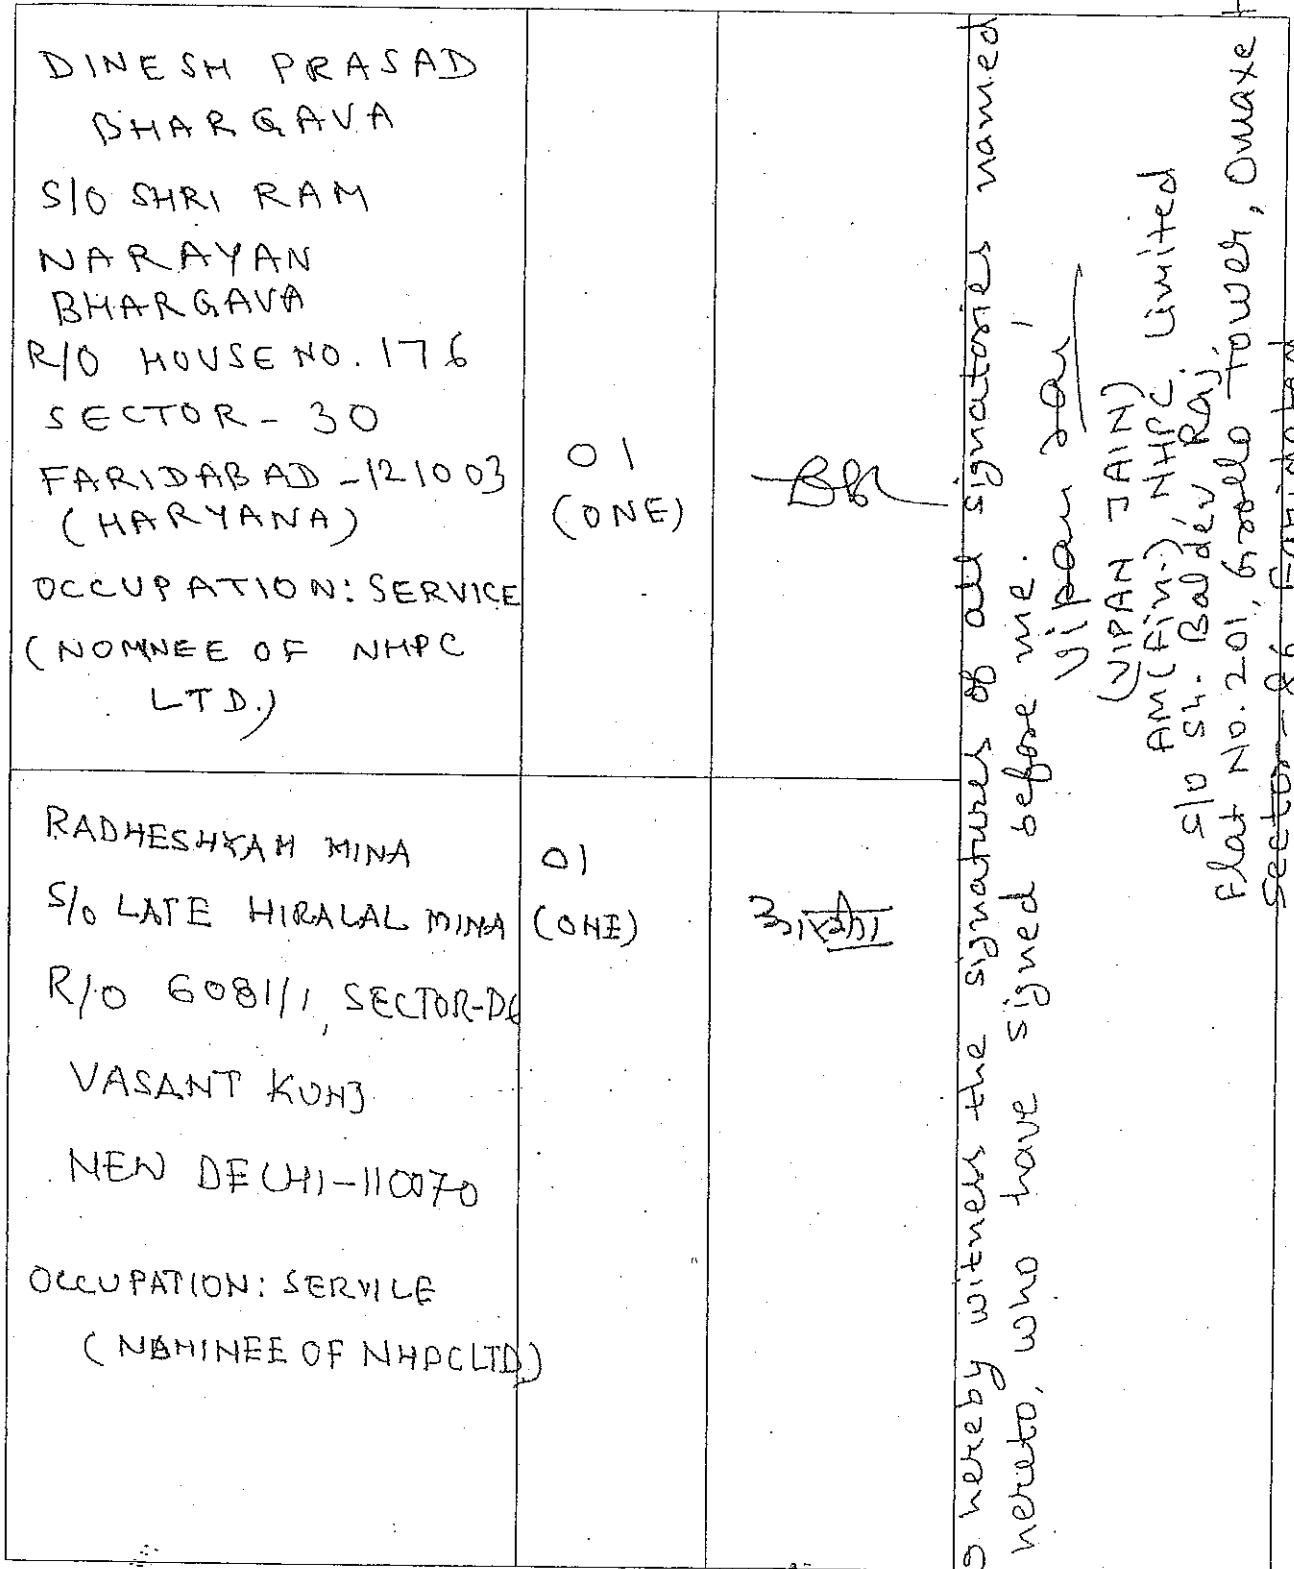 DINESH PRASAD
BHARGAVA
S/O SHRI RAM
NARAYAN
BHARGAVA
R/O HOUSE NO. 176
SECTOR - 30
FARIDABAD - 121003
(HARYANA)
OCCUPATION: SERVICE
(NOMNEE OF NHPC
LTD.)
01
(ONE)
RADHESHYAM MINA
S/O LATE HIRALAL MINA
R/O 6081/1, SECTOR-D6
VASANT KUNJ
NEW DELHI-110070
OCCUPATION: SERVICE
(NOMINEE OF NHPC LTD)
01
(ONE)
hereby witness the signatures of all signatories named
hereto, who have signed before me.
Vipan Jain
(VIPAN JAIN)
AM(Fin.), NHPC Limited
S/o Sh. Baldev Raj,
Flat No. 201, Tower, Omaxe
Sector - 86, Faridabad